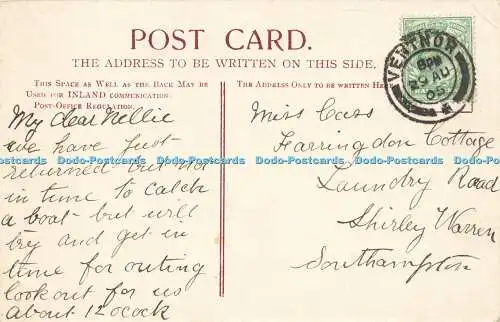 POST CARD.
THE ADDRESS TO BE WRITTEN ON THIS SIDE.
THIS SPACE AS WELL AS THE BACK MAY BE
USED FOR INLAND COMMUNICATION
POST-OFFICE REGULATION.
My dear Nellie
we have just
returned but not
in time to catch
a boat - but will
try and get in
time for outing
look out for us
about 12 ocock
THE ADDRESS ONLY TO BE WRITTEN HERE
Miss Cass
Farringdon Cottage
Laundry Road
Shirley Warren
Southampton
VENTNOR
8PM
AU
05
www.igpoty.com